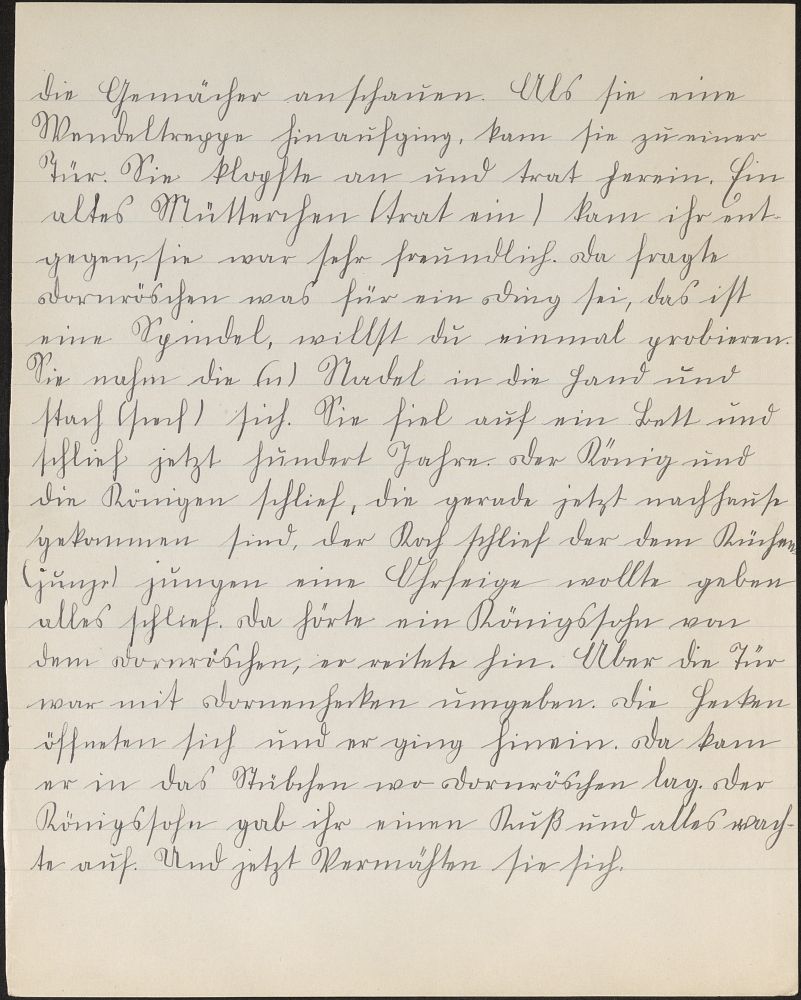 die Gemächer anschauen. Als sie eine
Wendeltreppe hinaufging, kam sie zu einer
Tür. Sie klopfte an und trat herein. Ein
altes Mütterchen (trat ein) kam ihr ent-
gegen, sie war sehr freundlich. Da fragte
Dornröschen was für ein Ding sei, das ist
eine Spindel, willst du einmal probieren.
Sie nahm die (n) Nadel in die Hand und
stach (stech) sich. Sie fiel auf ein Bett und
schlief jetzt hundert Jahre. Der König und
die Königen schlief, die gerade jetzt nachhause
gekommen sind, der Koch schlief der dem Küchen
(junge) jungen eine Ohrfeige wollte geben
alles schlief. Da hörte ein Königssohn von
dem Dornröschen, er reitete hin. Aber die Tür
war mit Dornenhecken umgeben. Die Hecken
öffneten sich und er ging hinein. Da kam
er in das Stübchen wo Dornröschen lag. Der
Königssohn gab ihr einen Kuß und alles wach-
te auf. Und jetzt Vermählten sie sich.